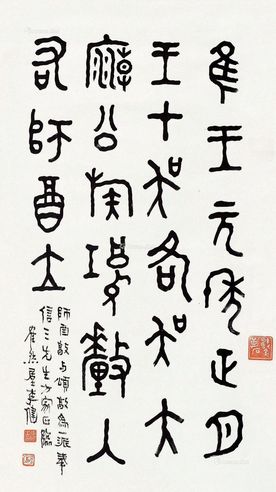 隹王元年正月
王才吳各吳大
廟公族釐入
右師酉立
師酉敦与頌敦為一派
信三先生方家正臨
李健